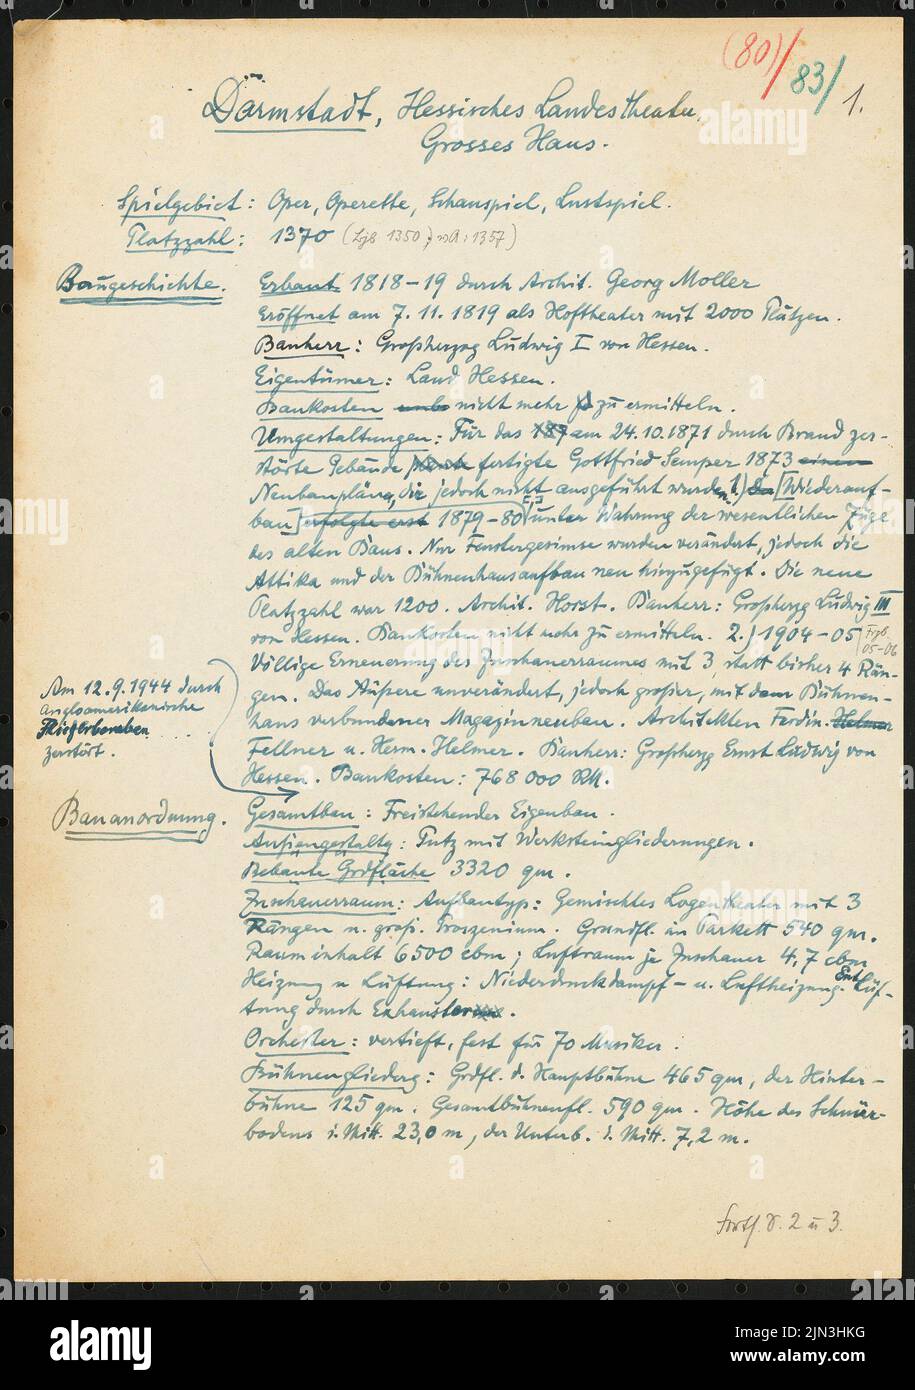 (80)/ 83/ 1.
Darmstadt, Hessisches Landestheater,
Grosses Haus.
Spielgebiet: Oper, Operette, Schauspiel, Lustspiel.
Platzzahl: 1370 (Ljb 1350; wA: 1357)
Baugeschichte. Erbaut 1818-19 durch Archit. Georg Moller
Eröffnet am 7.11.1819 als Hoftheater mit 2000 Plätzen.
Bauherr: Großherzog Ludwig I von Hessen.
Eigentümer: Land Hessen.
Baukosten nicht mehr zu ermitteln.
Umgestaltungen: Für das 187 am 24.10.1871 durch Brand zer-
störte Gebäude fertigte Gottfried Semper 1873 einen
Neubaupläne, die jedoch nicht ausgeführt wurden. 1.) Da [Wiederauf-
bau] erfolgte erst 1879-80 unter Wahrung der wesentlichen Züge
des alten Baus. Nur Fenstergesimse wurden verändert, jedoch die
Attika und der Bühnenhausaufbau neu hinzugefügt. Die neue
Platzzahl war 1200. Archit. Horst. Bauherr: Großherzg Ludwig III
von Hessen. Baukosten nicht mehr zu ermitteln. 2.) 1904-05 Frzb. 05-06
Völlige Erneuerung des Zuschauerraumes mit 3, statt bisher 4 Rän-
gen. Das Äußere unverändert, jedoch großer, mit dem Bühnen-
haus verbundener Magazinneubau. Architekten Ferdin. Helmer
Fellner u. Herm. Helmer. Bauherr: Großherzg Ernst Ludwig von
Hessen. Baukosten: 768 000 RM.
Am 12.9.1944 durch
angloamerikanische
Fliegerbomben
zerstört.
Bauanordnung. Gesamtbau: Freistehender Eigenbau.
Außengestaltg: Putz mit Werksteingliederungen.
Bebaute Grdfläche 3320 qm.
Zuschauerraum: Aufbautyp: Gemischtes Logentheater mit 3
Rängen u. groß. Proszenium. Grundfl. im Parkett 540 qm.
Rauminhalt 6500 cbm; Luftraum je Zuschauer 4,7 cbm
Heizung u Lüftung: Niederdruckdampf- u. Luftheizung. Entlüf-
tung durch Exhaustoren.
Orchester: vertieft, fest für 70 Musiker.
Bühnengliederg: Grdfl. d. Hauptbühne 465 qm, der Hinter-
bühne 125 qm. Gesamtbühnenfl. 590 qm. Höhe des Schnür-
bodens i. Mitt. 23,0 m, der Unterb. i. Mitt. 7,2 m.
Forts. S. 2 u 3.
alamy
Image ID: 2JN3HKG
www.alamy.com